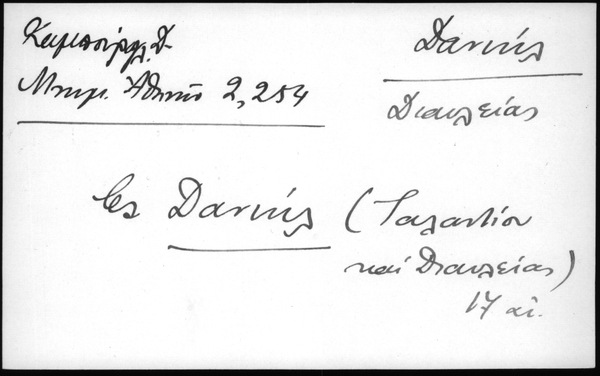 Καμπούρογλ. Δ.
Μνημ. Ἀθηνῶ 2,254
Δανιήλ
Διαυλείας
Δανιήλ (Ταλαντίου
καί Διαυλείας)
17 αἰ.